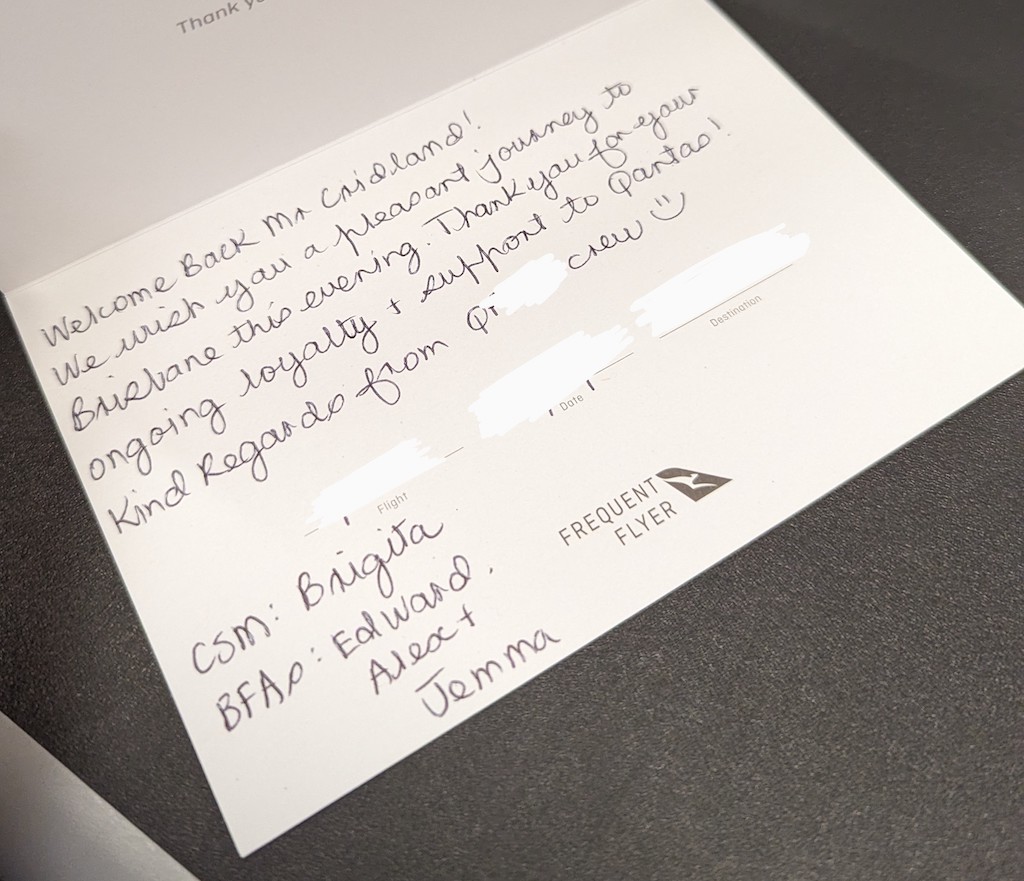 Thank
Welcome Back Mr Cridland!
We wish you a pleasant journey to
Brisbane this evening. Thank you for your
ongoing loyalty + support to Qantas!
Kind Regards from crew
Flight
Date
Destination
FREQUENT
FLYER
CSM: Brigita
BFAs: Edward,
Alex +
Jemma